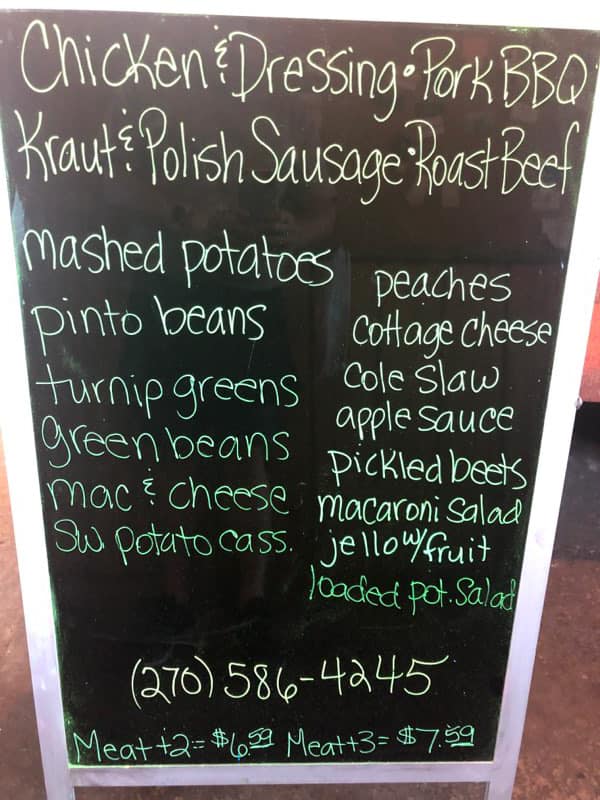 Chicken & Dressing • Pork BBQ
Kraut & Polish Sausage • Roast Beef
mashed potatoes
pinto beans
turnip greens
green beans
mac & cheese
Sw. potato cass.
peaches
cottage cheese
cole slaw
apple sauce
pickled beets
macaroni salad
jello w/ fruit
loaded pot. salad
(270) 586-4245
Meat+2= $6.59 Meat+3= $7.59